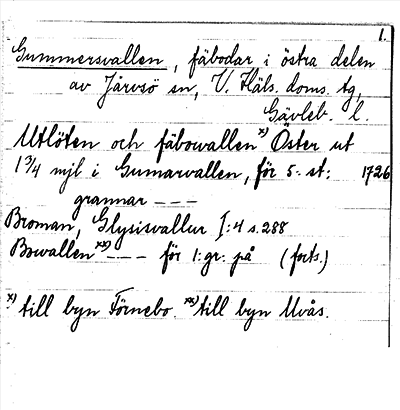 1.
Gummersvallen, fäbodar i östra delen
av Järvsö sn, V. Häls. doms. tg,
Gävleb. l.
Utlöten och fäbowallen x) Öster ut
1 3/4 mjl i Gumarvallen, för 5. st: 1726
grannar ---
Broman, Glysisvallur I:4 s. 288
Bowallen xx) --- för 1: gr: på (forts.)
x) till byn Förnebo. xx) till byn Uvås.